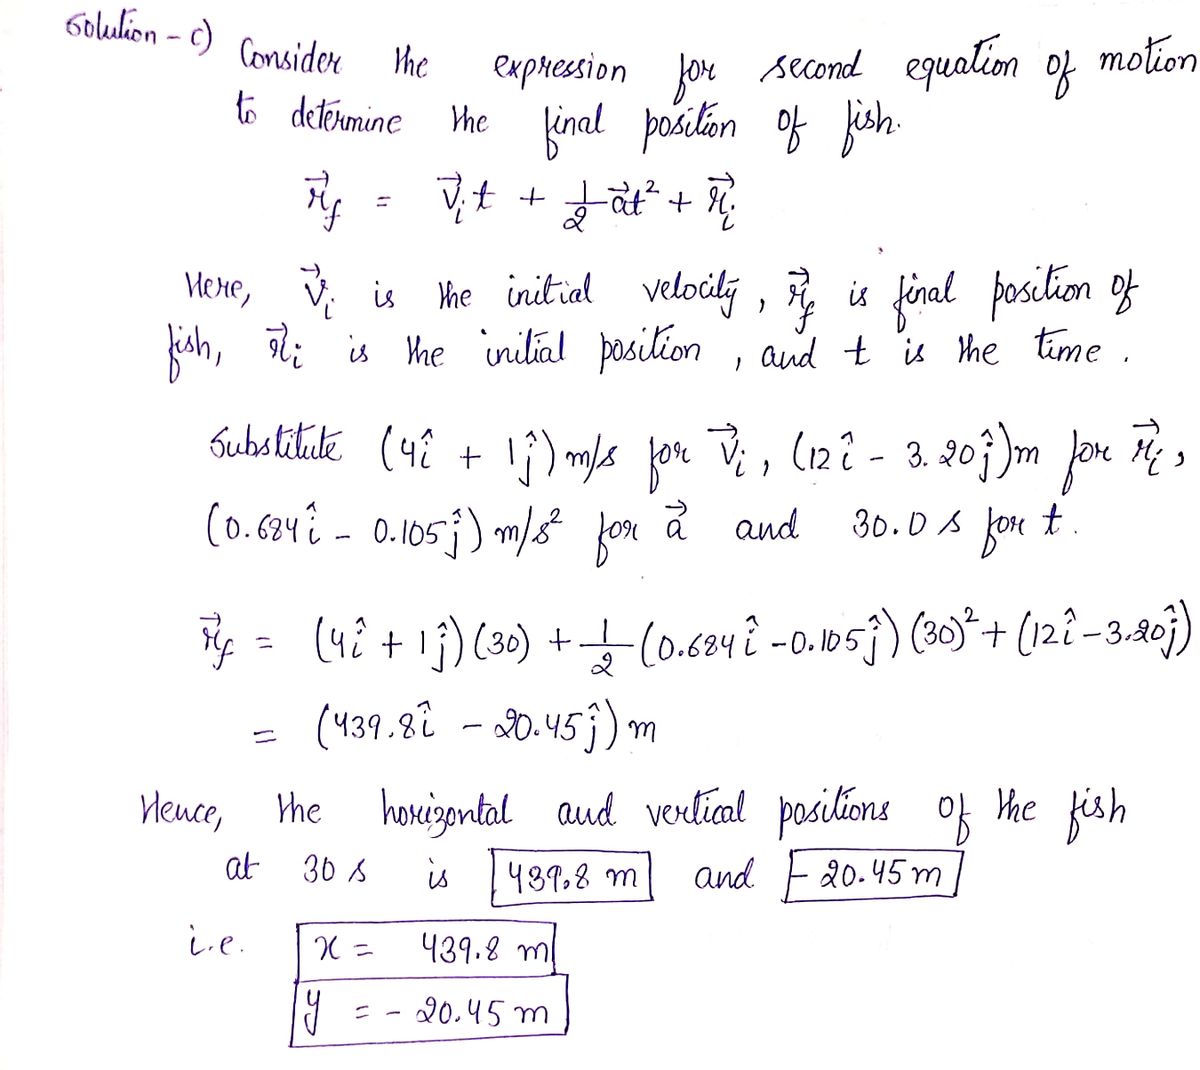 Solution - c) Consider the expression for second equation of motion
to determine the final position of fish.
r⃗_f = v⃗_i t + 1/2 a⃗t² + r⃗_i
Here, v⃗_i is the initial velocity, r⃗_f is final position of
fish, r⃗_i is the initial position, and t is the time.
Substitute (4î + 1ĵ) m/s for v⃗_i, (12î - 3.20ĵ)m for r⃗_i,
(0.684î - 0.105ĵ) m/s² for a⃗ and 30.0 s for t.
r⃗_f = (4î + 1ĵ)(30) + 1/2 (0.684î - 0.105ĵ)(30)² + (12î - 3.20ĵ)
= (439.8î - 20.45ĵ) m
Hence, the horizontal and vertical positions of the fish
at 30 s is 439.8 m and - 20.45 m
i.e. x = 439.8 m
y = - 20.45 m